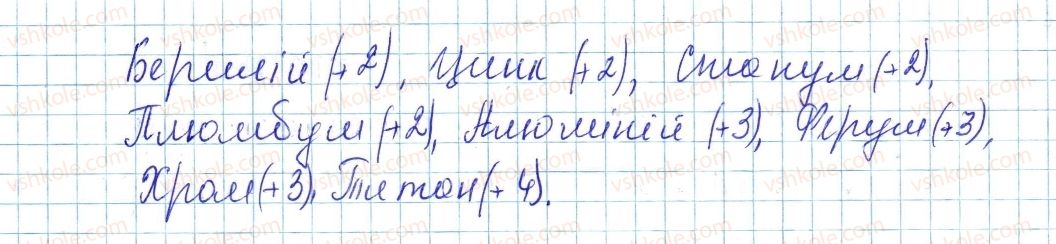 Берилій (+2), Цинк (+2), Станум (+2),
Плюмбум (+2), Алюміній (+3), Ферум (+3),
Хром (+3), Титан (+4).